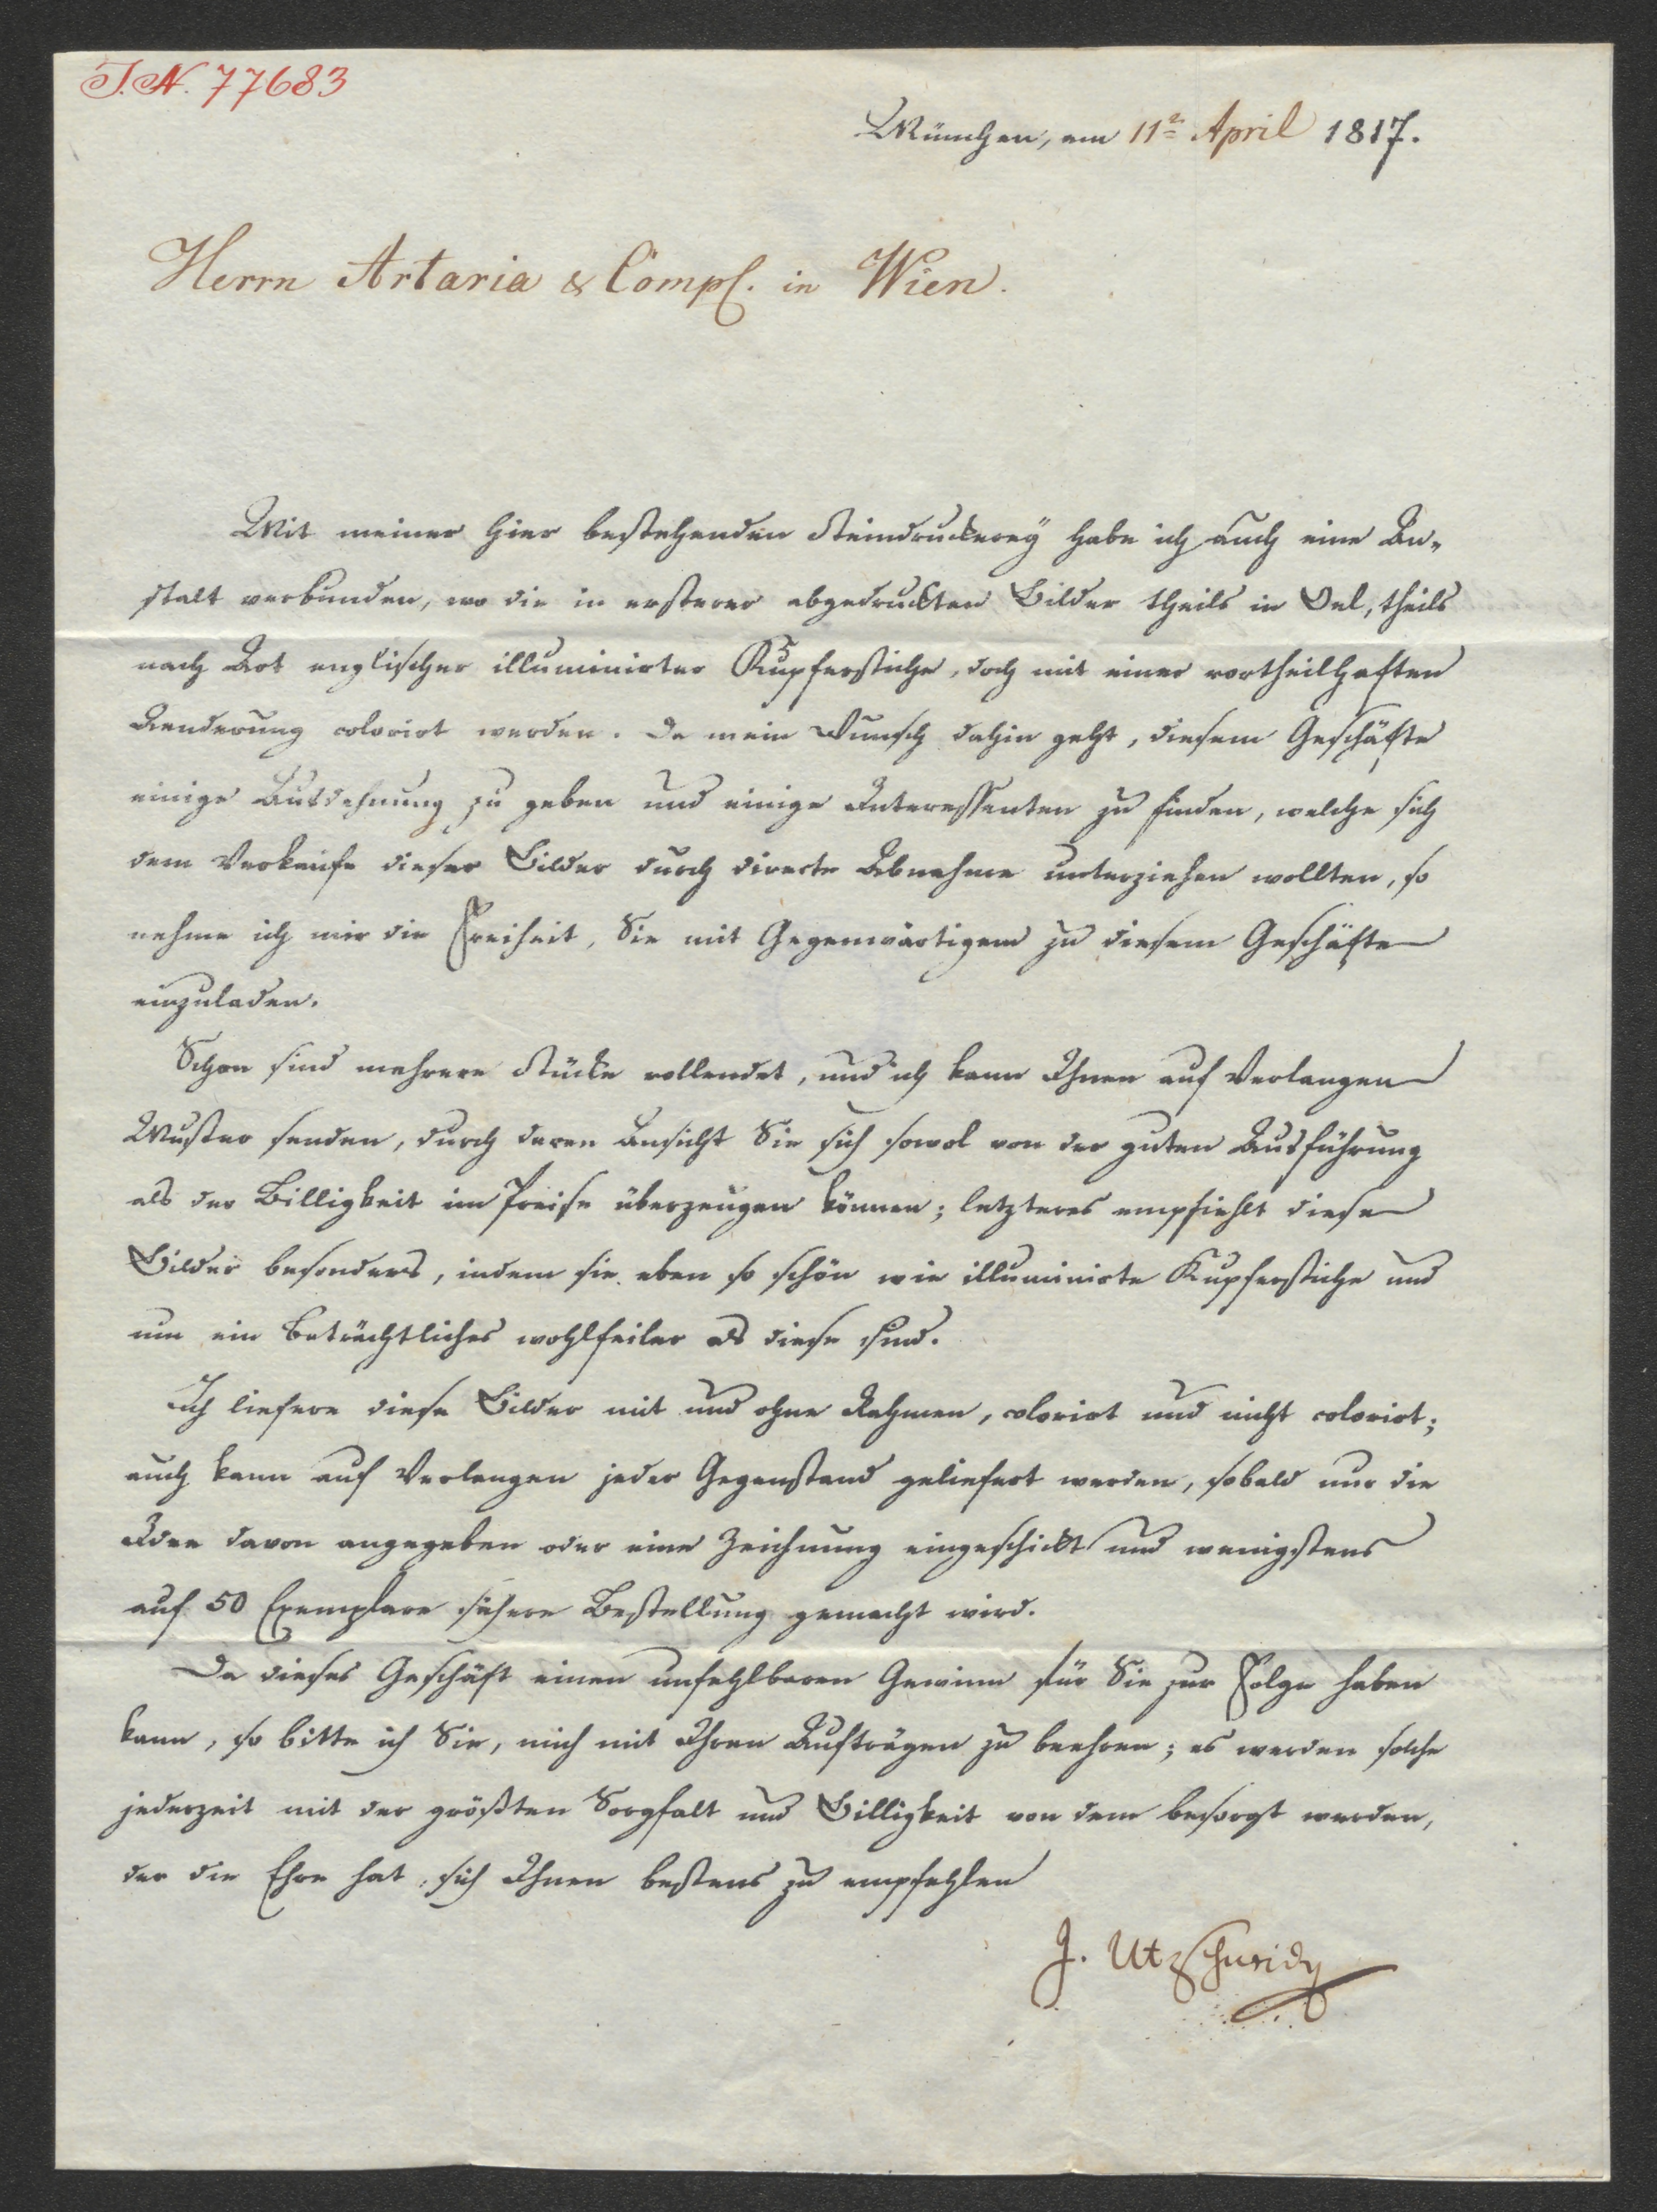 I.N. 77683
München, am 11n April 1817.
Herrn Artaria & Comp. in Wien.
Mit meiner hier bestehenden Steindruckerey habe ich auch eine An-
stalt verbunden, wo die in ersterer abgedruckten Bilder theils in Oel, theils
nach Art englischer illuminirter Kupferstiche, doch mit einer vortheilhaften
Aenderung colorirt werden. Da mein Wunsch dahin geht, diesem Geschäfte
einige Ausdehnung zu geben und einige Interessenten zu finden, welche sich
dem Verkaufe dieser Bilder durch directe Abnahme unterziehen wollten, so
nehme ich mir die Freiheit, Sie mit Gegenwärtigem zu diesem Geschäfte
einzuladen.
Schon sind mehrere Stücke vollendet, und ich kann Ihnen auf Verlangen
Muster senden, durch deren Ansicht Sie sich sowol von der guten Ausführung
als der Billigkeit im Preise überzeugen können; letzteres empfiehlt diese
Bilder besonders, indem sie eben so schön wie illuminirte Kupferstiche und
um ein beträchtliches wohlfeiler als diese sind.
Ich liefere diese Bilder mit und ohne Rahmen, colorirt und nicht colorirt;
auch kann auf Verlangen jeder Gegenstand geliefert werden, sobald nur die
Idee davon angegeben oder eine Zeichnung eingeschickt und wenigstens
auf 50 Exemplare sichere Bestellung gemacht wird.
Da dieses Geschäft einen unfehlbaren Gewinn für Sie zur Folge haben
kann, so bitte ich Sie, mich mit Ihren Aufträgen zu beehren; es werden solche
jederzeit mit der größten Sorgfalt und Billigkeit von dem besorgt werden,
der die Ehre hat, sich Ihnen bestens zu empfehlen
J. Utzschneider